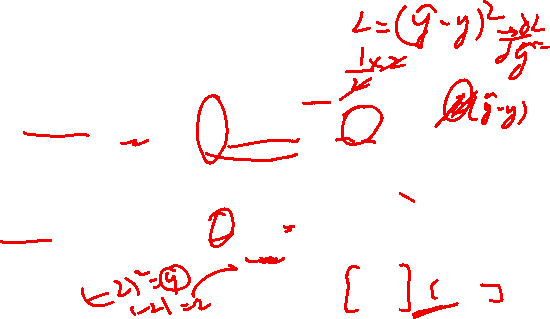 L=(ŷ-y)² → ∂L/∂ŷ =
1/2 × 2
(ŷ-y)
(-2)² = 4
|-2| = 2
[ ] [ ]